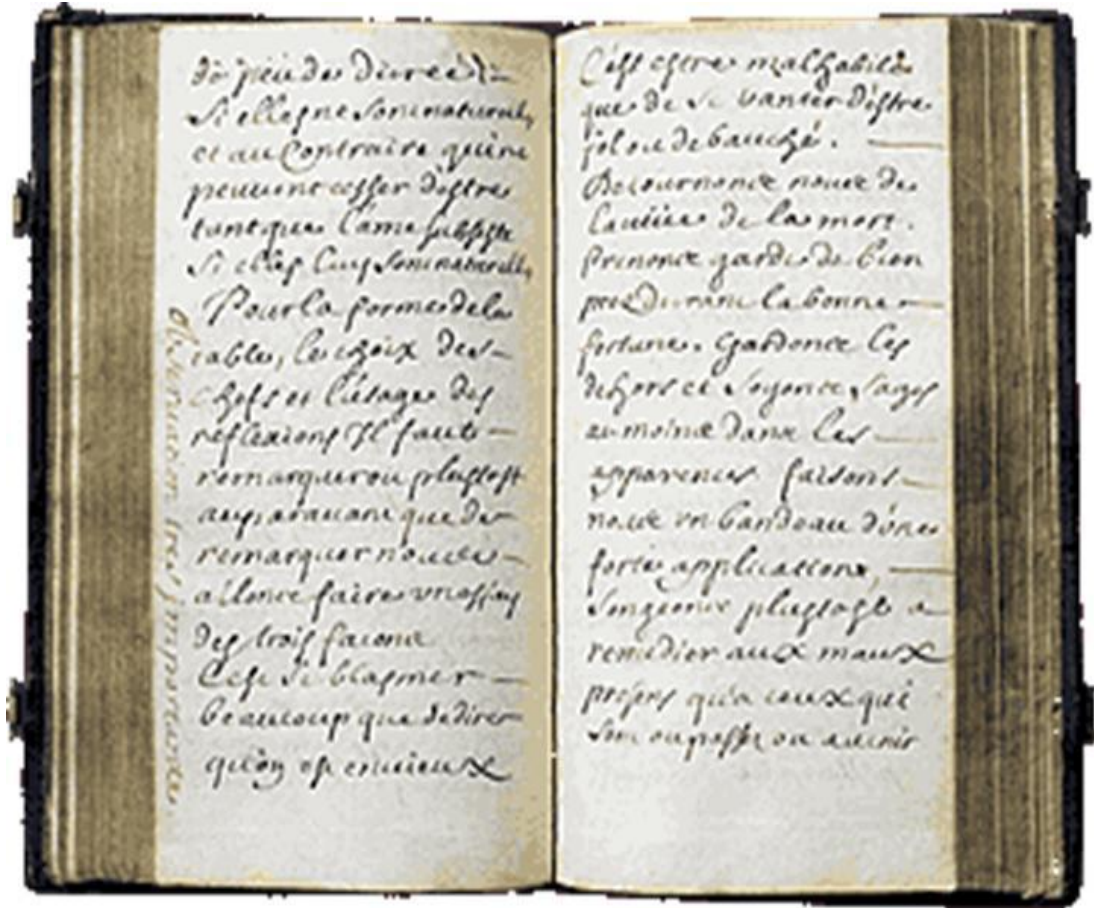 de peu de durée
Si elles ne sont naturelles,
et au Contraire qu'ne
peuvent cesser d'estre
tant que l'ame subsiste
Si elles luy sont naturelles,
Pour la forme de la
table, le choix des
chefs et l'usage des
reflexions Il faut
remarquer ou plustost
auparavant que de
remarquer nous
allons faire un essay
des trois facons
C'est se blasmer
beaucoup que de dire
qu'on est envieux
Observation tres importante
C'est estre malhabile
que de se vanter d'estre
fol ou debauché.
Detournons nous de
la veüe de la mort.
prenons garde de bien
pres durant la bonne
fortune. Gardons les
dehors et soyons sages
au moins dans les
apparences faisons
nous un bandeau d'une
forte application,
songeons plustost a
remedier aux maux
presens qu'a ceux qui
sont ou passé ou a venir